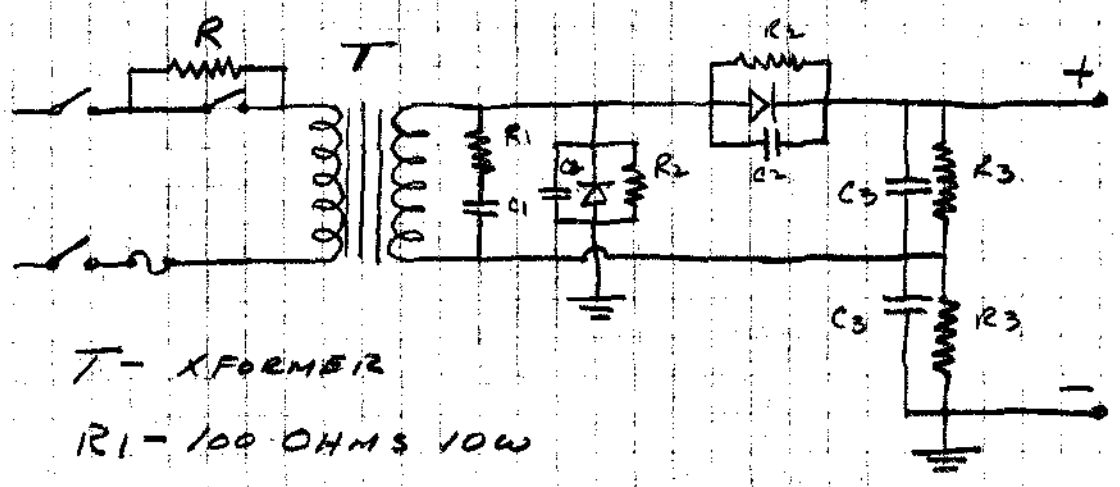 R
T
R2
+
R1
C1
R2
C2
C3
R3
C3
R3
−
T - XFORMER
R1 - 100 OHMS 10W